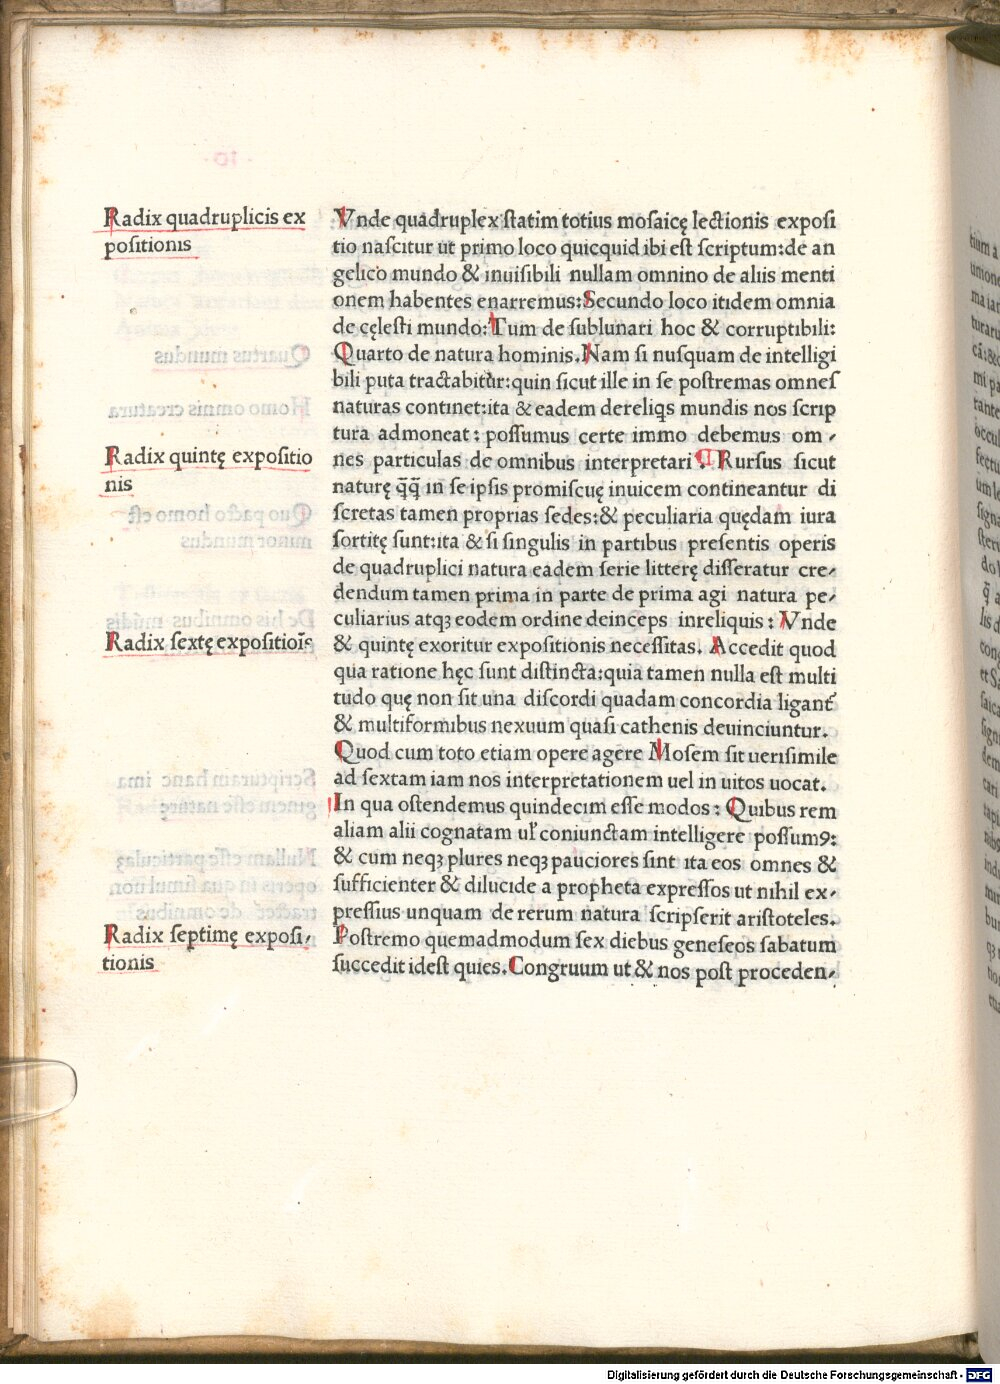 Radix quadruplicis ex
positionis
Vnde quadruplex statim totius mosaicę lectionis exposi
tio nascitur ut primo loco quicquid ibi est scriptum:de an
gelico mundo & inuisibili nullam omnino de aliis menti
onem habentes enarremus:Secundo loco itidem omnia
de cęlesti mundo:Tum de sublunari hoc & corruptibili:
Quarto de natura hominis.Nam si nusquam de intelligi
bili puta tractabitur:quin sicut ille in se postremas omnes
naturas continet:ita & eadem dereliqs mundis nos scrip
tura admoneat: possumus certe immo debemus om-
Radix quintę expositio
nis
nes particulas de omnibus interpretari. ¶ Rursus sicut
naturę q̃q̃ in se ipsis promiscuę inuicem contineantur di
scretas tamen proprias sedes:& peculiaria quędam iura
sortitę sunt:ita & si singulis in partibus presentis operis
de quadruplici natura eadem serie litterę disseratur cre-
dendum tamen prima in parte de prima agi natura pe-
culiarius atqꝫ eodem ordine deinceps inreliquis: Vnde
Radix sextę expositiois̄
& quintę exoritur expositionis necessitas. Accedit quod
qua ratione hęc sunt distincta:quia tamen nulla est multi
tudo quę non sit una discordi quadam concordia ligant᷑
& multiformibus nexuum quasi cathenis deuinciuntur.
Quod cum toto etiam opere agere Mosem sit uerisimile
ad sextam iam nos interpretationem uel in uitos uocat.
In qua ostendemus quindecim esse modos: Quibus rem
aliam alii cognatam ul̕ coniunctam intelligere possumꝰ:
& cum neqꝫ plures neqꝫ pauciores sint ita eos omnes &
sufficienter & dilucide a propheta expressos ut nihil ex-
pressius unquam de rerum natura scripserit aristoteles.
Radix septimę exposi-
tionis
Postremo quemadmodum sex diebus geneseos sabatum
succedit idest quies.Congruum ut & nos post proceden-
Digitalisierung gefördert durch die Deutsche Forschungsgemeinschaft - DFG